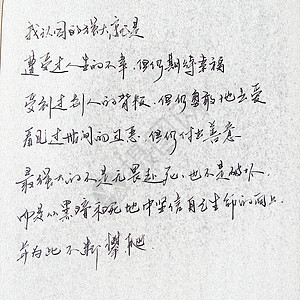 我认同的强大就是
遭受过人生的不幸,但仍期待幸福
受到过别人的背叛,但仍勇敢地去爱
看见过世间的丑恶,但仍付出善意
最强大的不是无畏赴死,也不是破坏
而是从黑暗和死地中坚信自己生命的向上
并为此不断攀爬